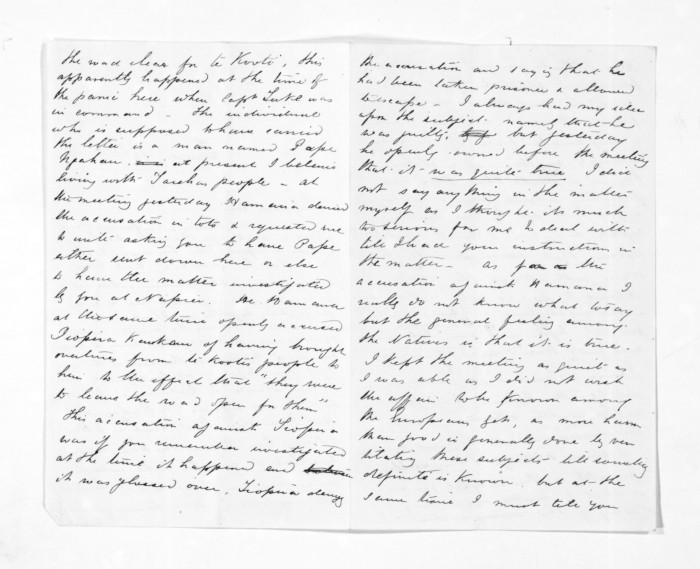 the road clear for te Kooti, this
apparently happened at the time of
the panic here when Capt Tuke was
in command - The individual
who is supposed to have carried
the letter is a man named Pape
at present I believe
living with Tareha's people - at
the meeting yesterday Hamana denied
the accusation in toto & requested me
to write asking you to have Pape
either sent down here or else
to have the matter investigated
by you at Napier. Hamana
at the same time openly accused
Tiopira Kaukau of having brought
overtures from te Kooti's people to
him to the effect that "they were
to leave the road open for them"
This accusation against Tiopira
was if you remember investigated
at the time it happened and
it was glossed over, Tiopira denying
the accusation and saying that he
had been taken prisoner & allowed
to escape - I always had my idea
upon the subject namely that he
was guilty, but yesterday
he openly owned before the meeting
that it was quite true. I did
not say anything in the matter
myself as I thought it much
too serious for me to deal with
till I had your instructions in
the matter - as for the
accusation against Hamana I
really do not know what to say
but the general feeling among
the Natives is that it is true.
I kept the meeting as quiet as
I was able as I did not wish
the affair to be known among
the Europeans yet, as more harm
than good is generally done by ven
tilating these subjects till something
definite is known. but at the
same time I must tell you